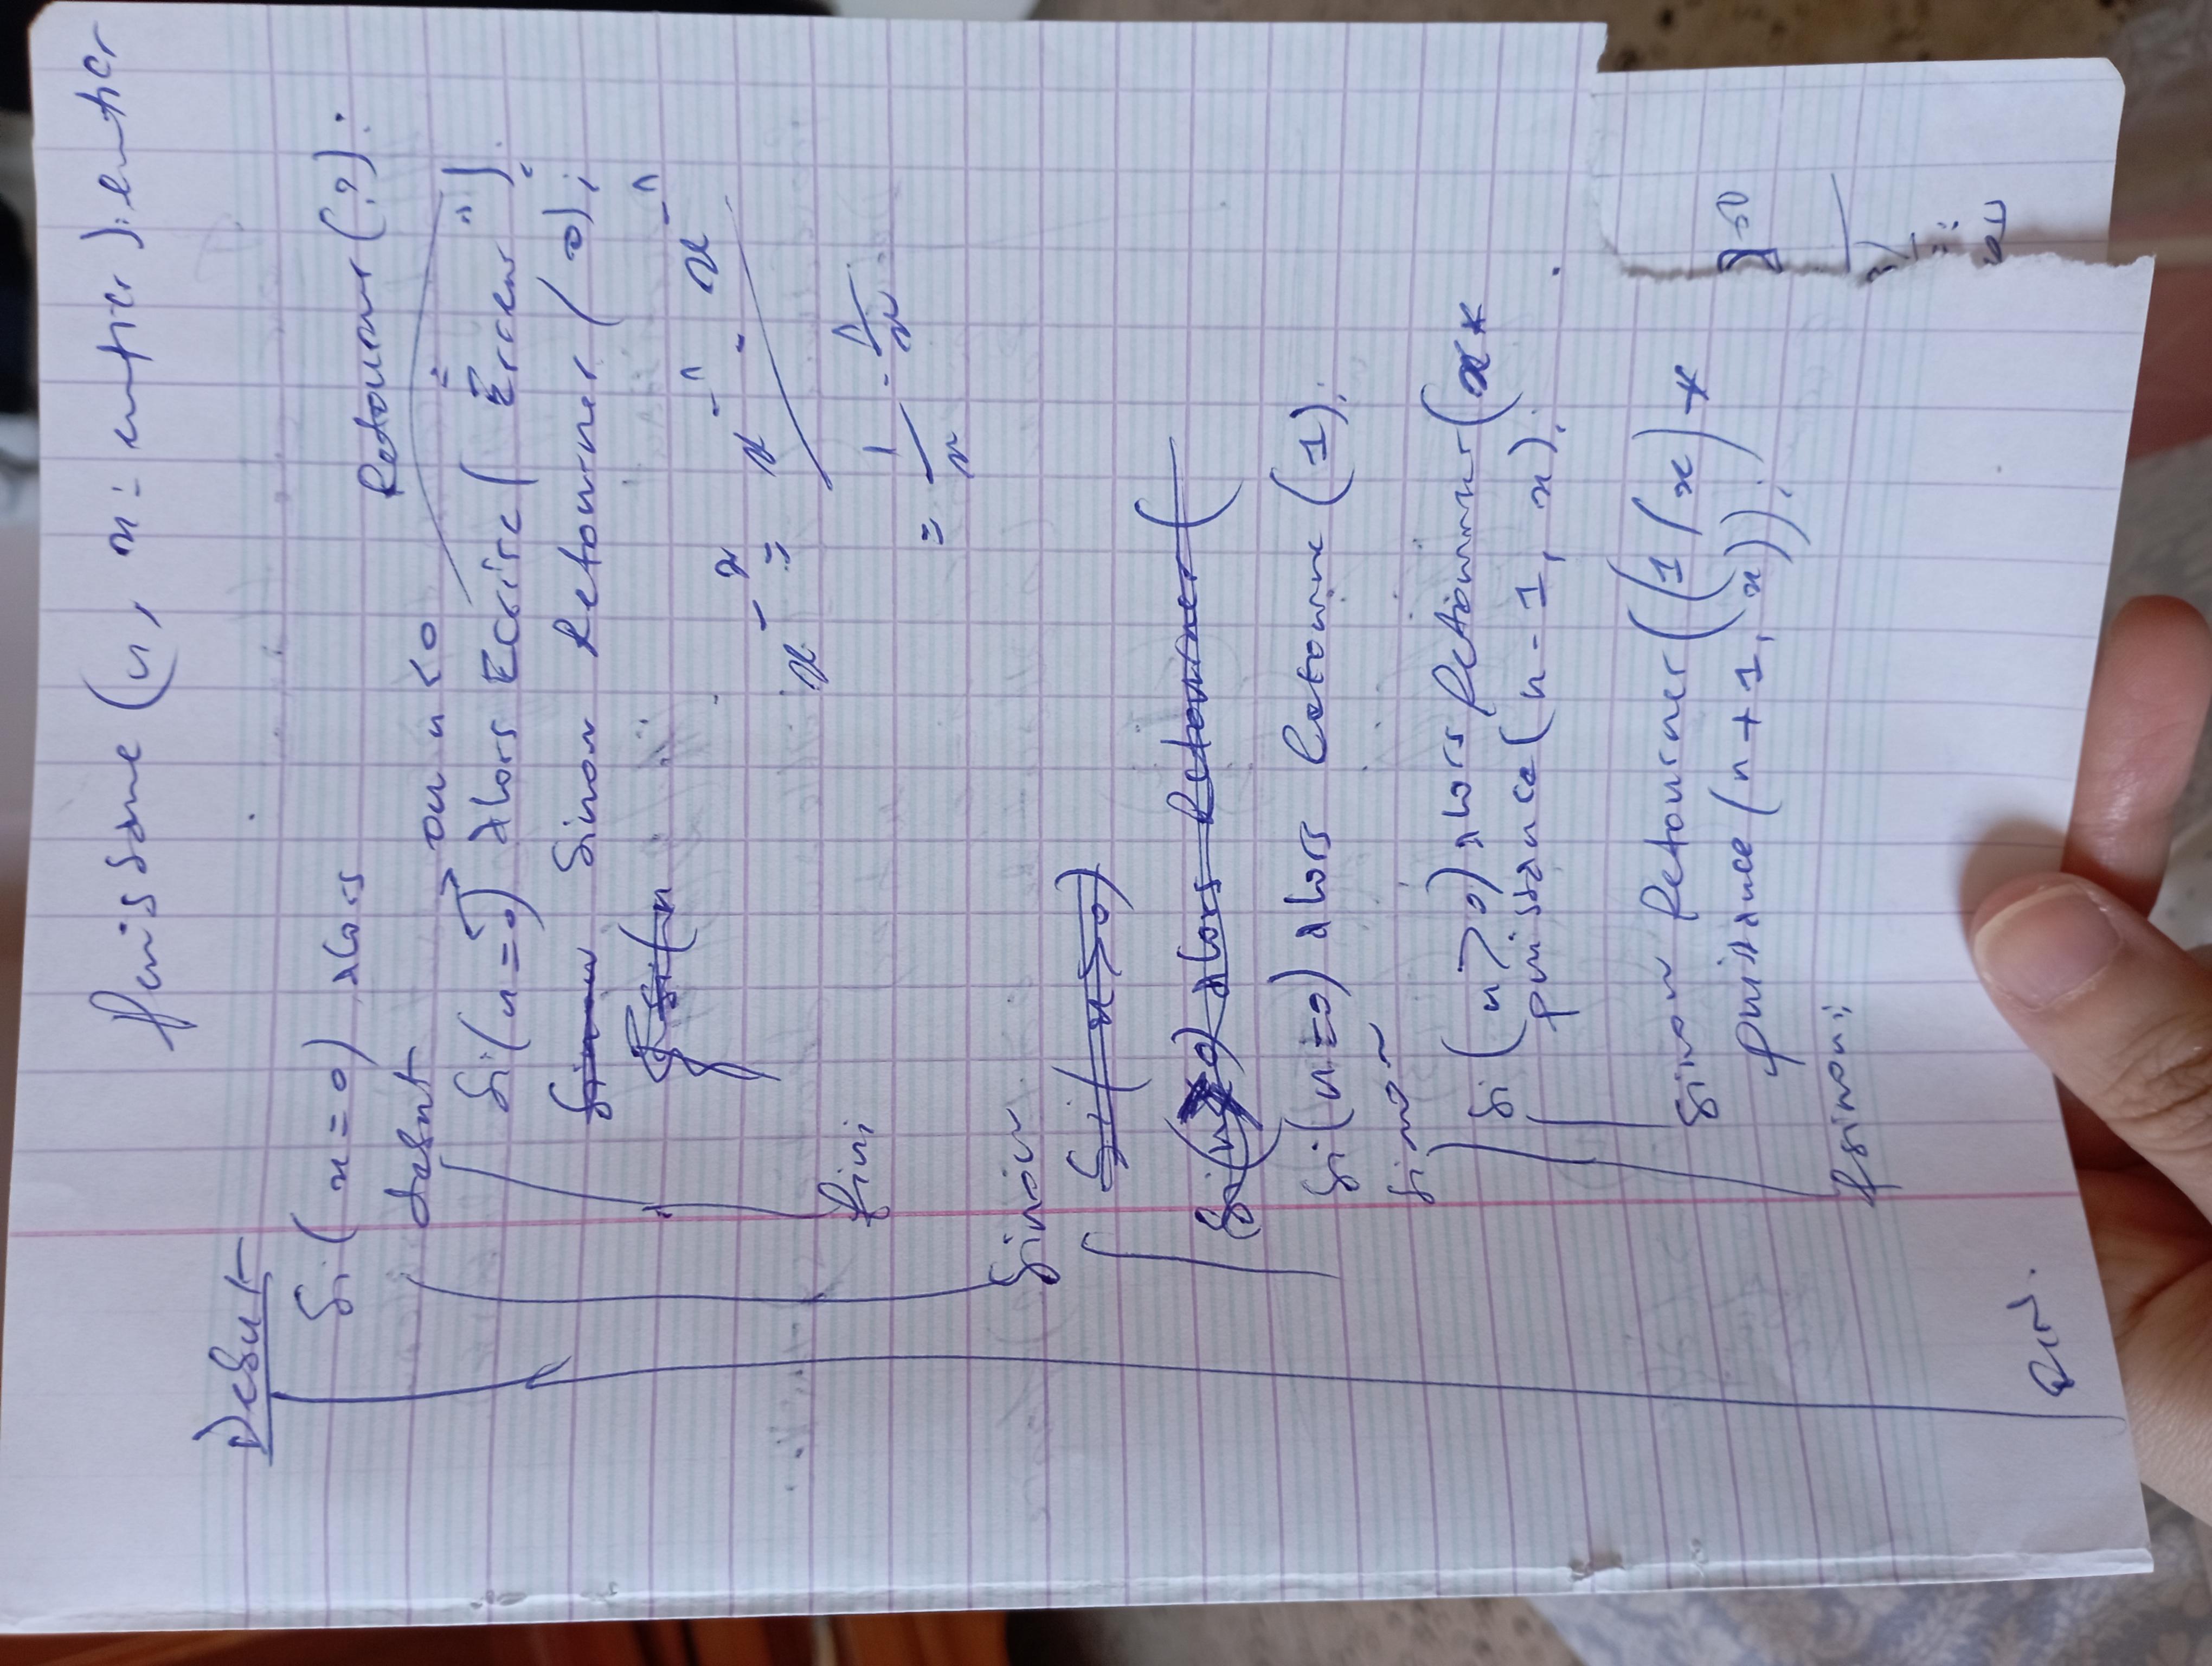 puissance (n, x: entier): entier
Debut
Si (x=0) alors
Retourner (?);
debut
ou n<0
Si (n=0) alors Ecrire ("Erreur");
Sinon Sinon Retourner (0);
fsi (n
x^-2 = x^-1 . x^-1
= 1/x . 1/x
fin;
Sinon
Si (x>0)
Si (n>0) alors Retourner (
Si (n=0) alors Retourne (1);
sinon
Si (n>0) alors Retourner (x*
puissance (n-1, x);
sinon Retourner ((1/x) *
puissance (n+1, x));
fsinon;
FIN.